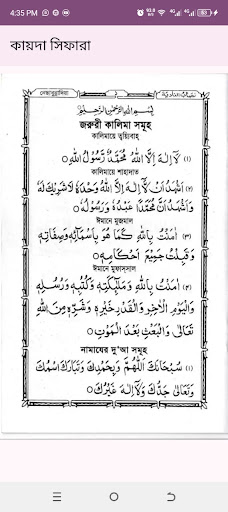 4:35 PM
কায়দা সিফারা
بِسْمِ اللهِ الرَّحْمٰنِ الرَّحِيْمِ
জরুরী কালিমা সমূহ
কালিমায়ে ত্বায়্যিবাহ্
(١) لَا اِلٰهَ اِلَّا اللهُ مُحَمَّدٌ رَّسُوْلُ اللهِ ○
কালিমায়ে শাহাদাত
(٢) اَشْهَدُ اَنْ لَّا اِلٰهَ اِلَّا اللهُ وَحْدَهٗ لَا شَرِيْكَ لَهٗ
وَاَشْهَدُ اَنَّ مُحَمَّدًا عَبْدُهٗ وَرَسُوْلُهٗ ○
ঈমানে মুজমাল
(٣) اٰمَنْتُ بِاللهِ كَمَا هُوَ بِاَسْمَائِهٖ وَصِفَاتِهٖ
وَقَبِلْتُ جَمِيْعَ اَحْكَامِهٖ ○
ঈমানে মুফাস্সাল
(٤) اٰمَنْتُ بِاللهِ وَمَلٰئِكَتِهٖ وَكُتُبِهٖ وَرُسُلِهٖ
وَالْيَوْمِ الْاٰخِرِ وَالْقَدْرِ خَيْرِهٖ وَشَرِّهٖ مِنَ اللهِ
تَعَالٰى وَالْبَعْثِ بَعْدَ الْمَوْتِ ○
নামাযের দু'আ সমূহ
(١) سُبْحَانَكَ اللّٰهُمَّ وَبِحَمْدِكَ وَتَبَارَكَ اسْمُكَ
وَتَعَالٰى جَدُّكَ وَلَا اِلٰهَ غَيْرُكَ ○